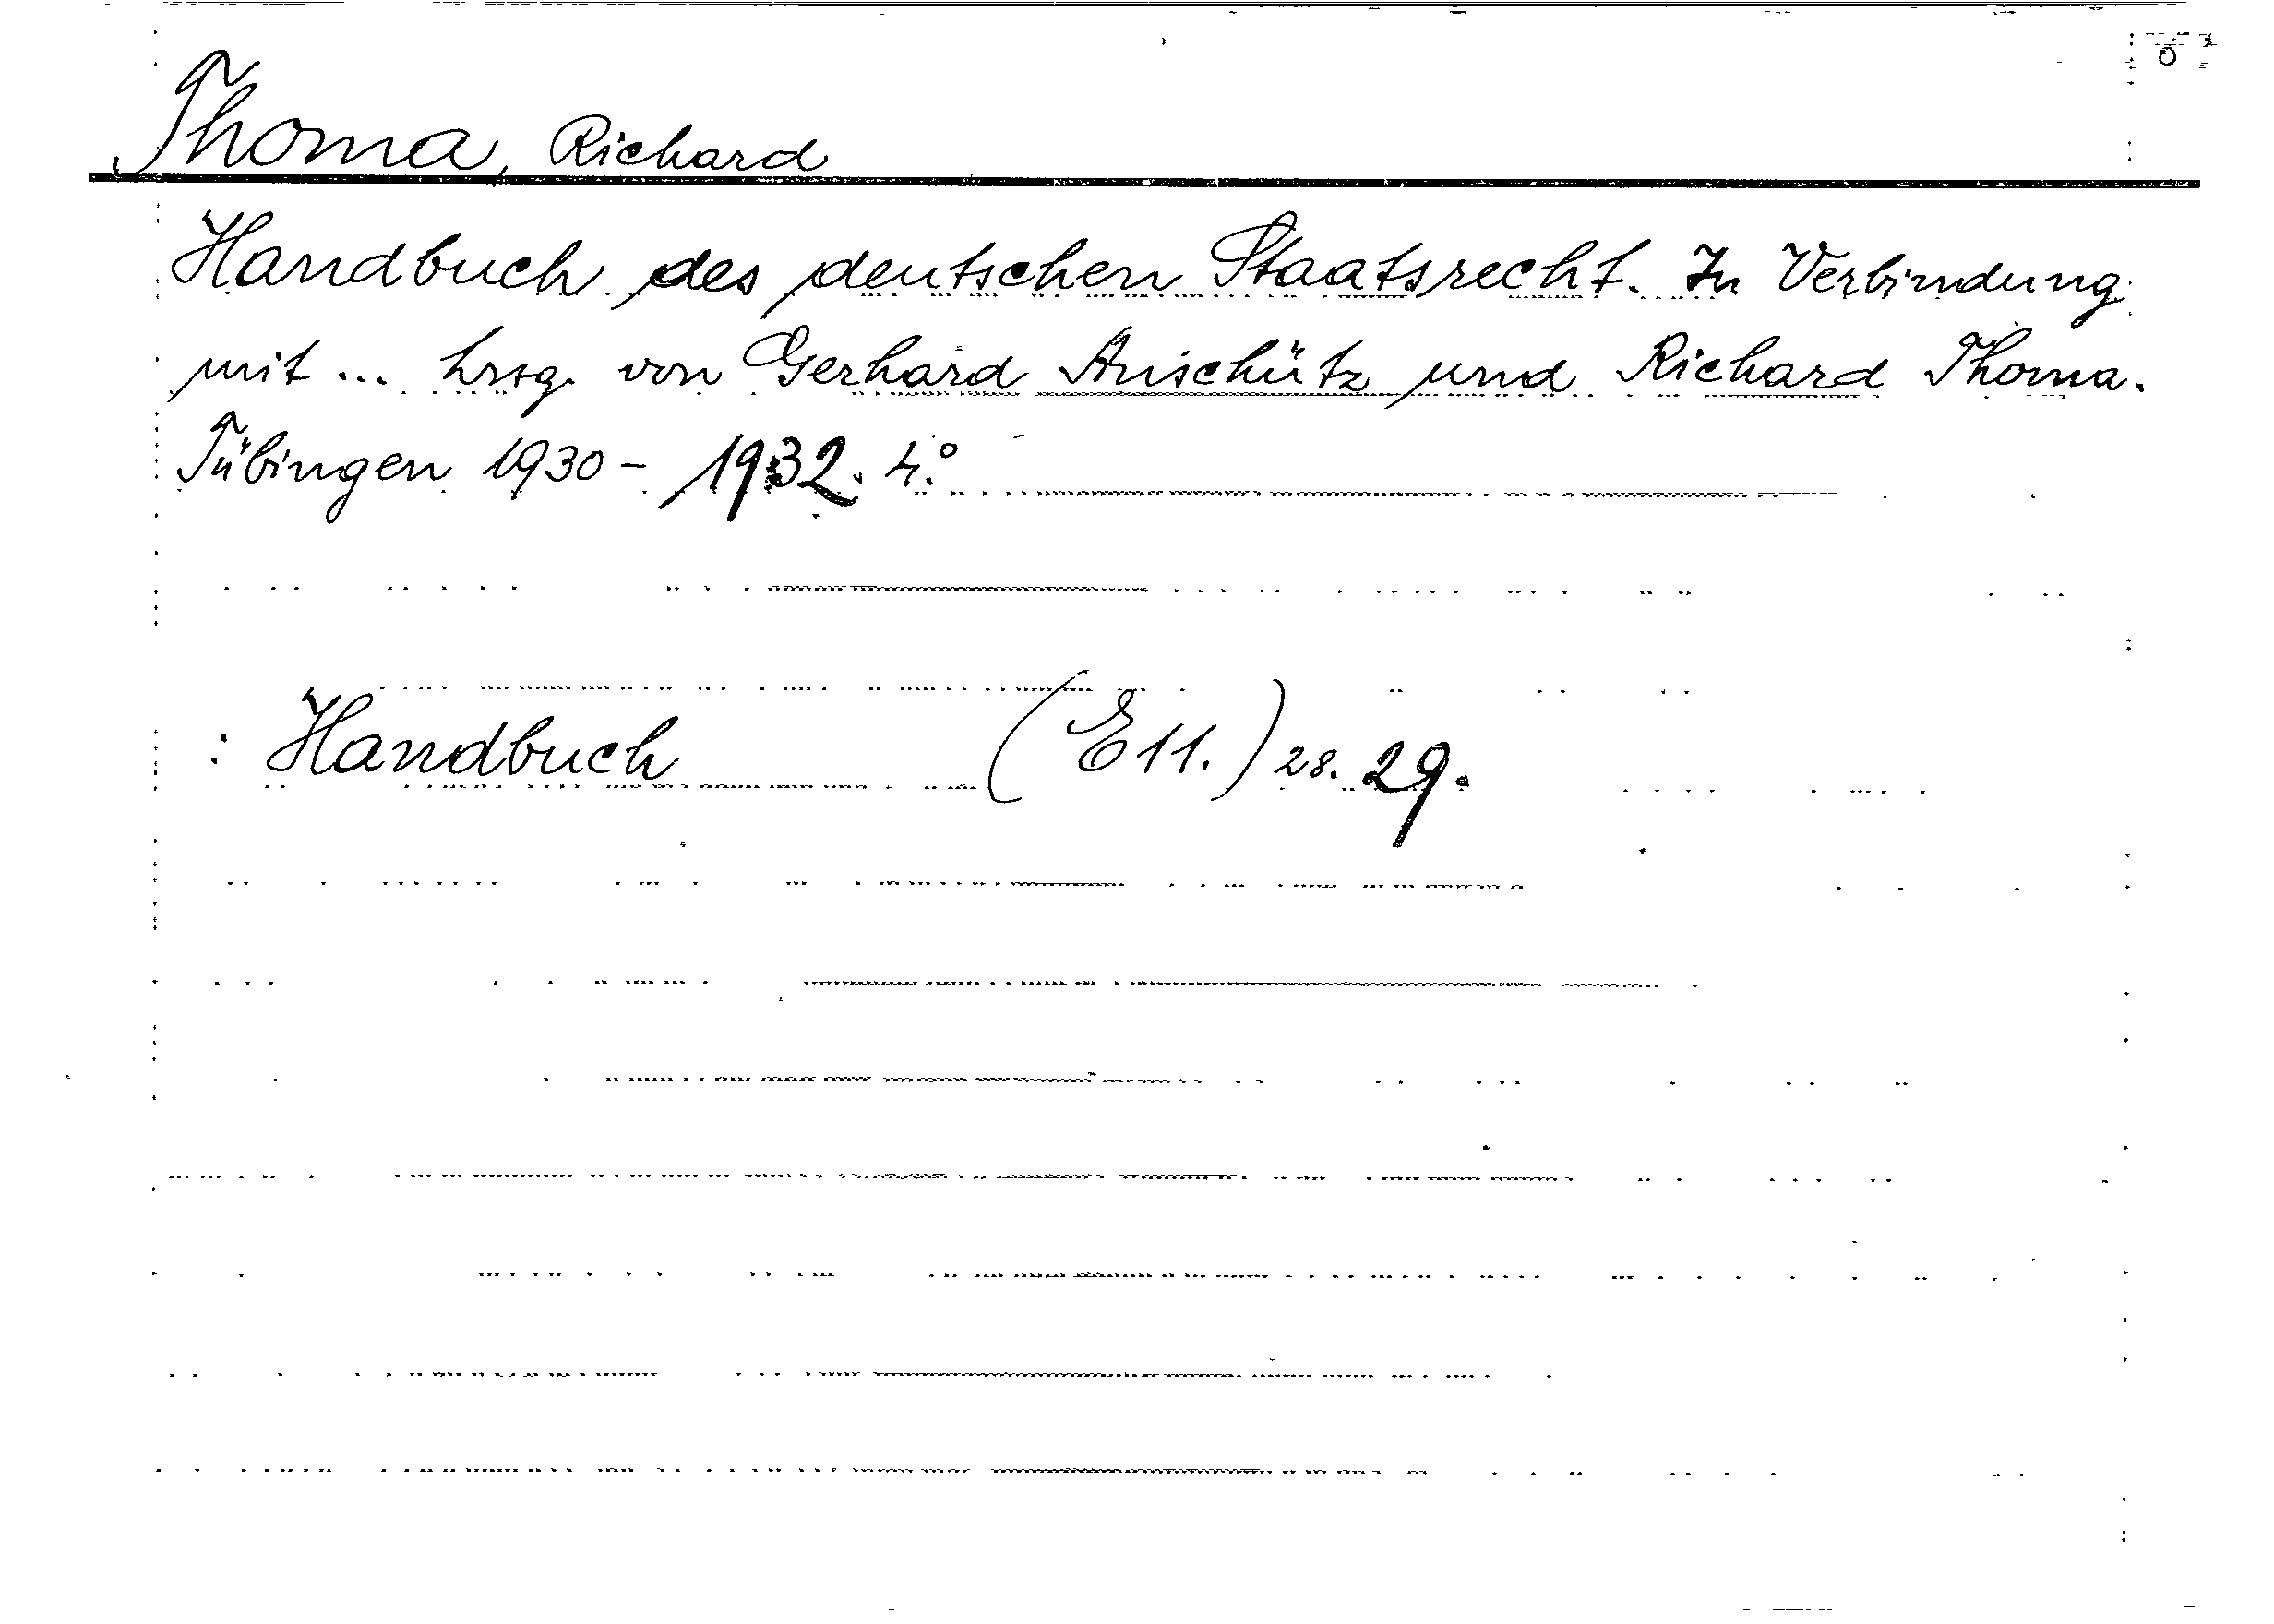 Thoma, Richard
Handbuch des deutschen Staatsrecht. In Verbindung
mit ... hrsg. von Gerhard Anschütz und Richard Thoma.
Tübingen 1930 - 1932. 4.°
: Handbuch (E 11.) 28. 29.